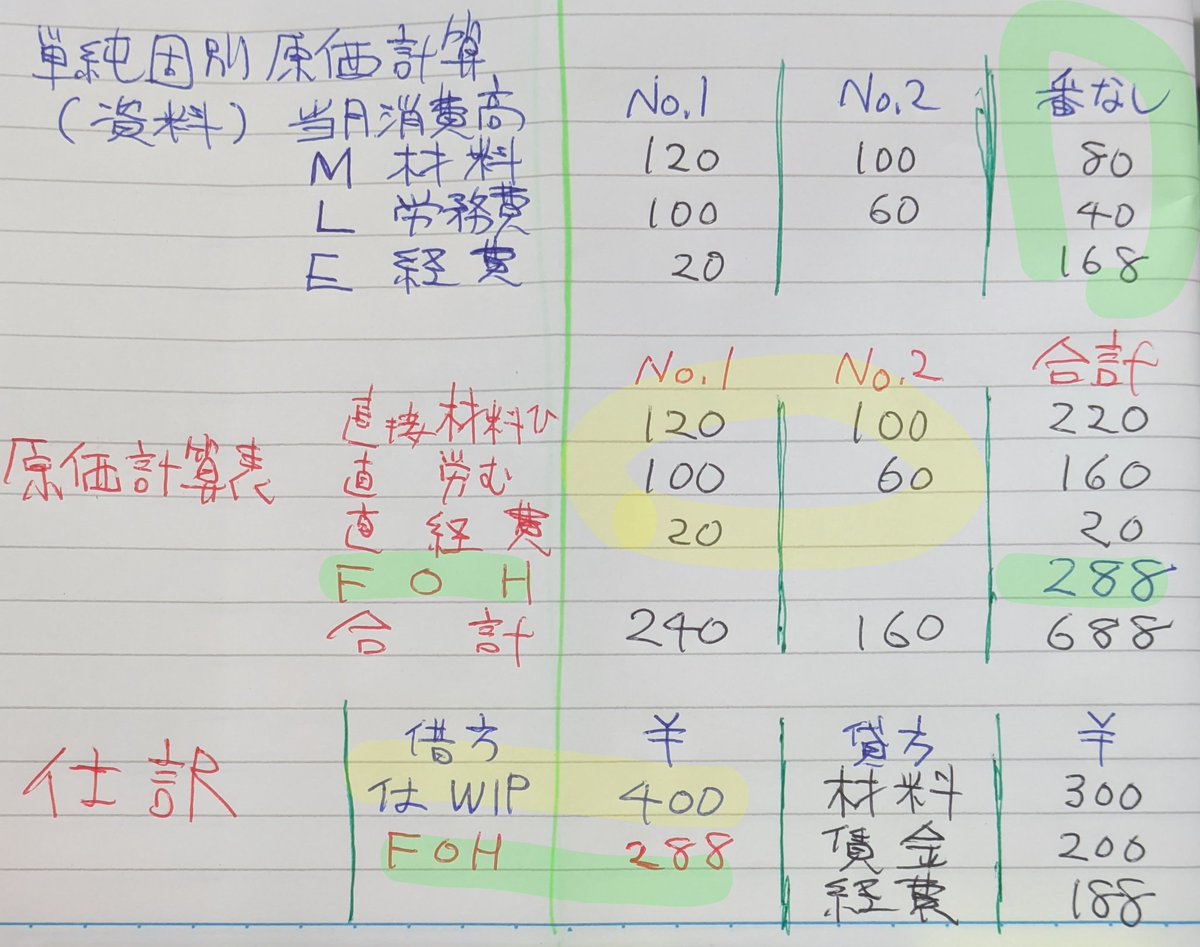 単純個別原価計算
(資料) 当月消費高 No.1 No.2 番なし
M 材料 120 100 80
L 労務費 100 60 40
E 経費 20 168
No.1 No.2 合計
直接材料ひ 120 100 220
原価計算表 直 労む 100 60 160
直 経費 20 20
FOH 288
合計 240 160 688
借方 ¥ 貸方 ¥
仕訳 仕WIP 400 材料 300
FOH 288 賃金 200
経費 188